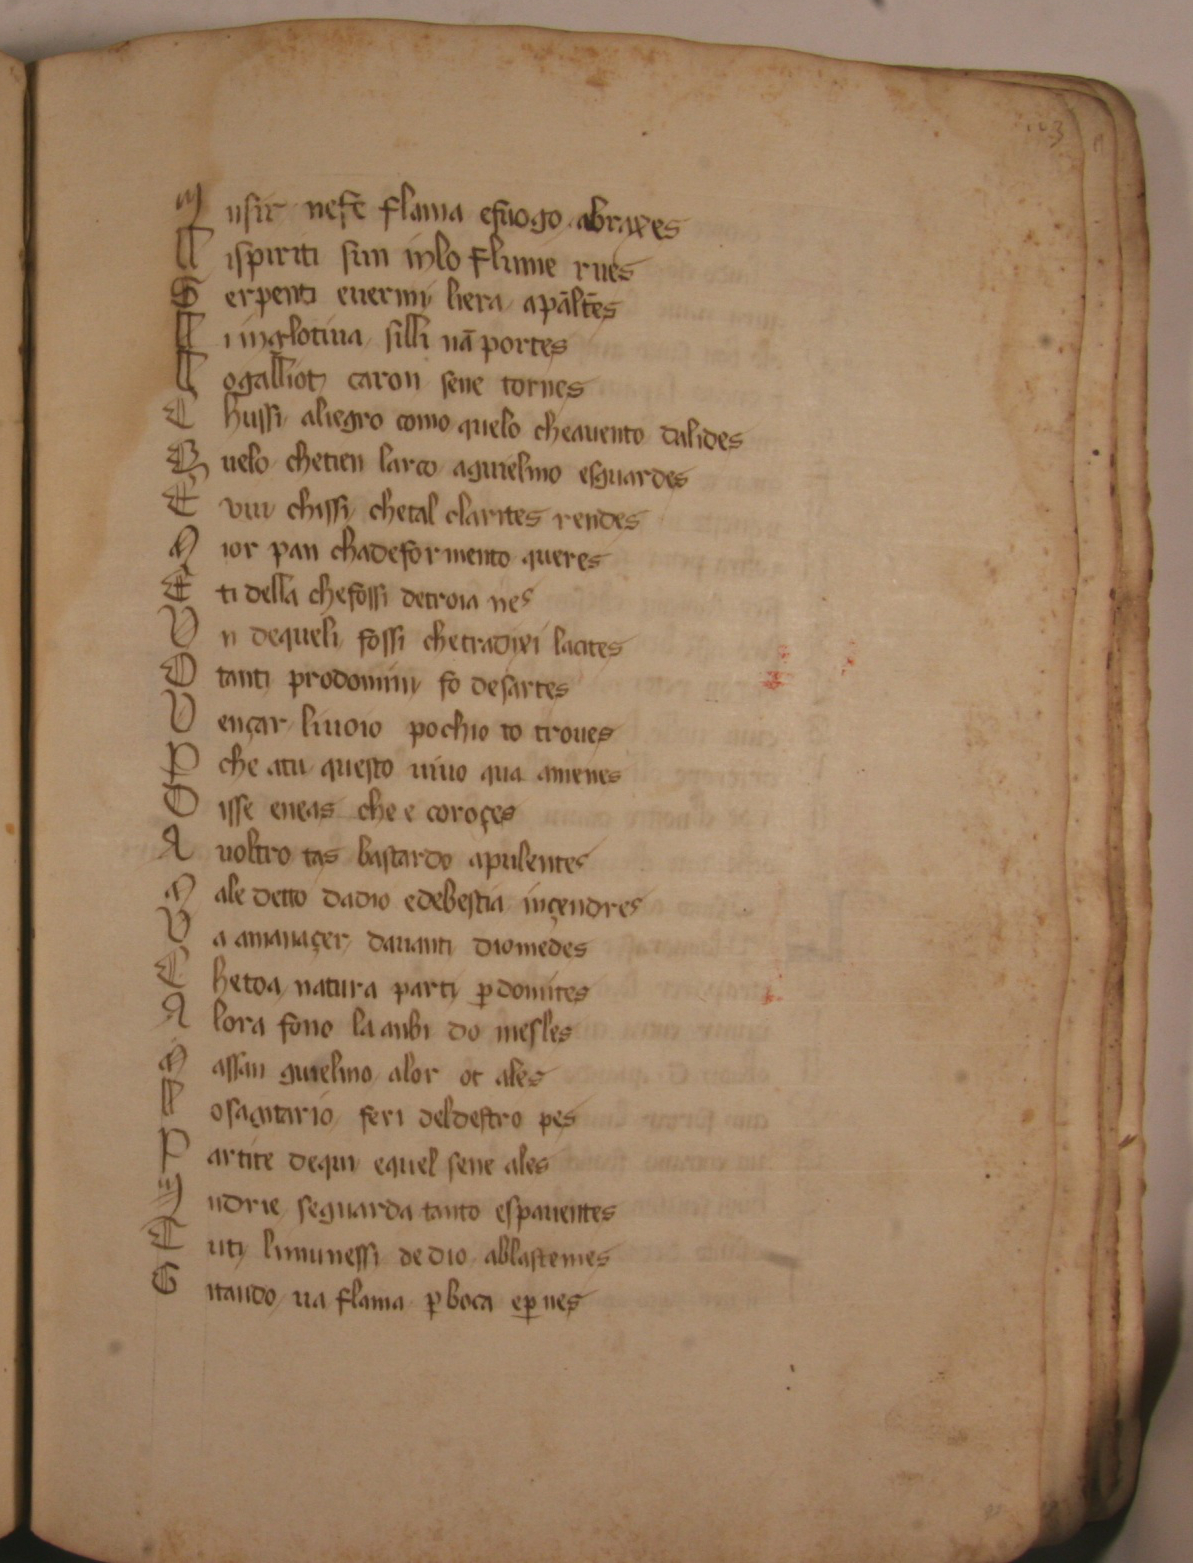 103
L ispiriti sun inlo flume rues
S erpenti euermi liera apāltēs
L i inglotiua silli nā portes
L ogalliot caron sene tornes
C hussi aliegro como quelo cheauento dalides
Q uelo chetien larco aguielmo esguardes
E viu chissi chetal clarites rendes
M ior pan chadeformento queres
E ti della chefossi detroia nes
V n dequeli fossi chetradixi lacites
O tanti prodomini fo desartes
V ençar liuoio pochio to troues
P che atu questo uiuo qua amenes
D isse eneas che e coroçes
A uoltro tas bastardo apulentes
M ale detto dadio edebestia inçendres
V a amanaçer dauanti diomedes
C hetoa natura parti ꝑdomites
A lora fono la anbi do mesles
M assan guielmo alor ot ales
L osagitario feri deldestro pes
P artite dequi equel sene ales
I ndrie seguarda tanto espauentes
T uti limunessi de dio ablastemes
G itando ua flama ꝑboca eꝑ nes